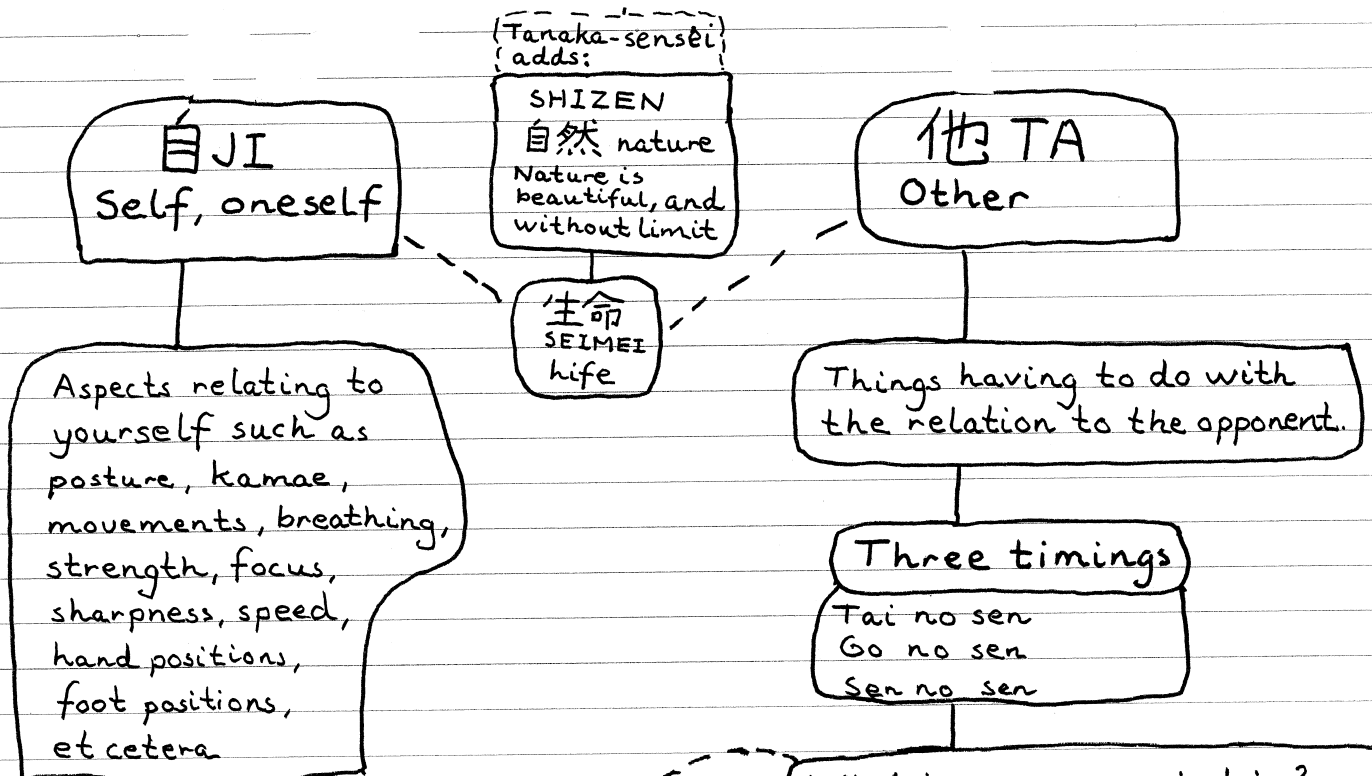 Tanaka-sensei
adds:
SHIZEN
自然 nature
Nature is
beautiful, and
without limit
自 JI
Self, oneself
他 TA
Other
生命
SEIMEI
life
Aspects relating to
yourself such as
posture, kamae,
movements, breathing,
strength, focus,
sharpness, speed,
hand positions,
foot positions,
et cetera
Things having to do with
the relation to the opponent.
Three timings
Tai no sen
Go no sen
Sen no sen